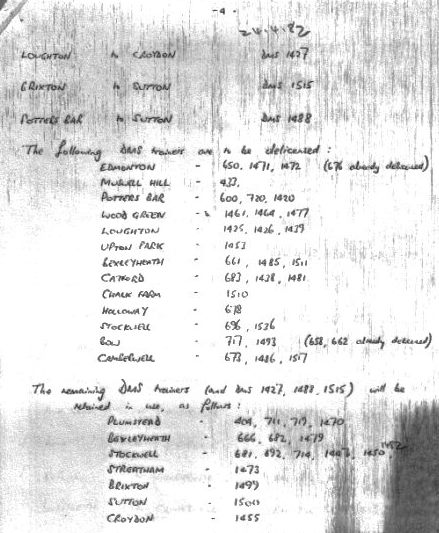 - 4 -
24.4.82
LOUGHTON to CROYDON DMS 1427
BRIXTON to SUTTON DMS 1515
POTTERS BAR to SUTTON DMS 1488
The following DMS trainers are to be delicensed :
EDMONTON - 650, 1471, 1472 (676 already delicensed)
MUSWELL HILL - 433,
POTTERS BAR - 600, 720, 1420
WOOD GREEN - 1461, 1464, 1477
LOUGHTON - 1425, 1426, 1439
UPTON PARK - 1453
BEXLEYHEATH - 661, 1485, 1511
CATFORD - 683, 1438, 1481
CHALK FARM - 1510
HOLLOWAY - 678
STOCKWELL - 696, 1526
BOW - 717, 1493 (658, 662 already delicensed)
CAMBERWELL - 673, 1486, 1517
The remaining DMS trainers (and DMS 1427, 1488, 1515) will be
retained in use, as follows :
PLUMSTEAD - 404, 711, 719, 1470
BEXLEYHEATH - 666, 682, 1479
STOCKWELL - 681, 692, 714, 1447, 1450 1452
STREATHAM - 1473
BRIXTON - 1499
SUTTON - 1500
CROYDON - 1455